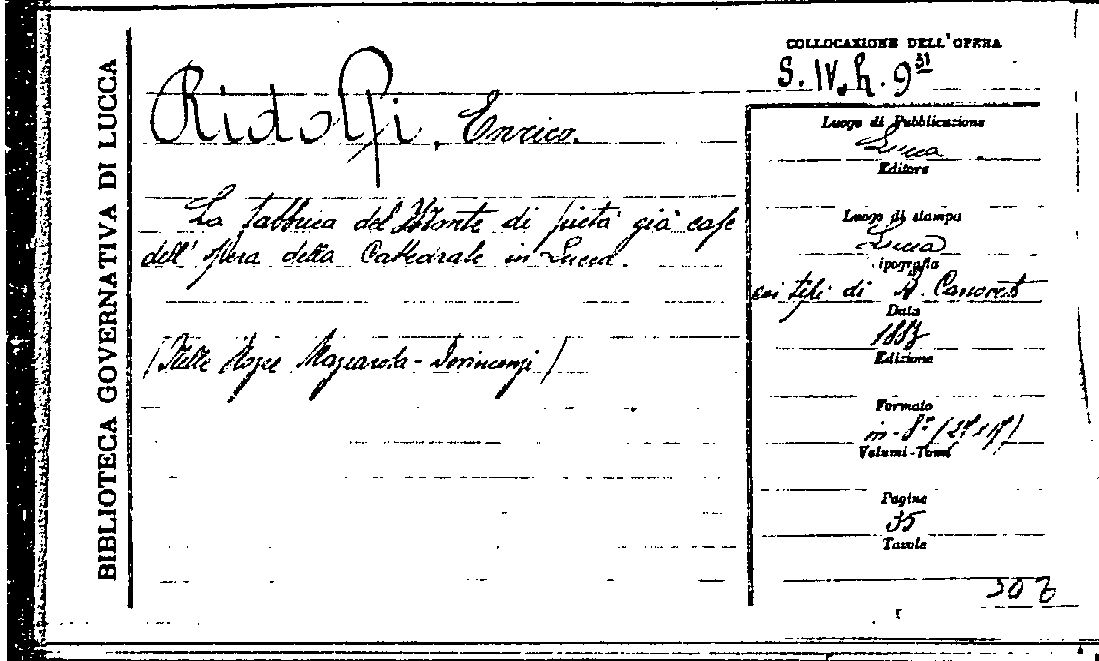 BIBLIOTECA GOVERNATIVA DI LUCCA
Ridolfi, Enrico.
La fabbrica del Monte di pietà già case
dell'opera della Cattedrale in Lucca.
(Nelle Nozze Mazzarosa-
COLLOCAZIONE DELL'OPERA
S. IV. h. 9 31
Luogo di Pubblicazione
Lucca
Editore
Luogo di stampa
Lucca
ipografia
coi tipi di
Data
Edizione
Formato
in-8°
Volumi-Tomi
Pagine
35
Tavole